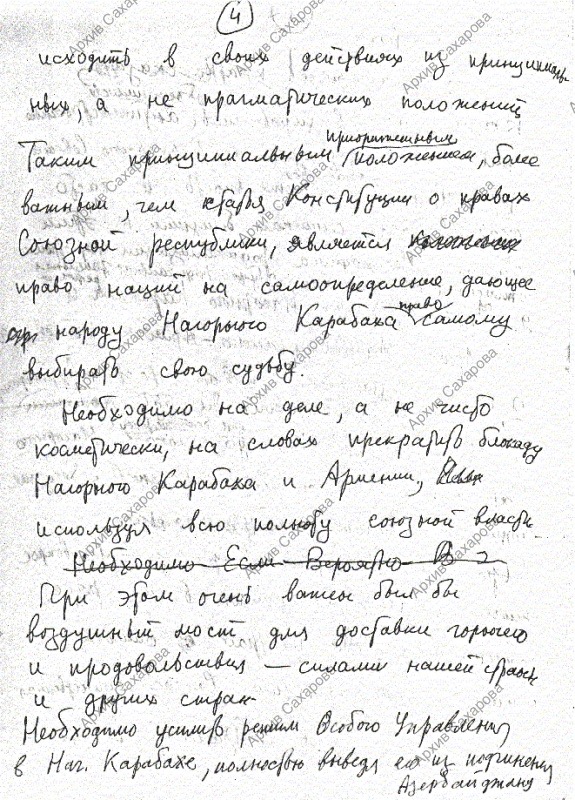 4
исходить в своих действиях из принципиаль-
ных, а не прагматических положений
Таким принципиальным приоритетным положением, более
важным, чем статья Конституции о правах
Союзной республики, является
право наций на самоопределение, дающее
народу Нагорного Карабаха право самому
выбирать свою судьбу.
Необходимо на деле, а не чисто
косметически, на словах прекратить блокаду
Нагорного Карабаха и Армении,
используя всю полноту союзной власти
Необходимо Если Вероятно В
При этом очень важен был бы
воздушный мост для доставки горючего
и продовольствия — силами нашей страны
и других стран
Необходимо усилив режим Особого Управления
в Наг. Карабахе, полностью выведя его из подчинения
Азербайджану
Архив Сахарова